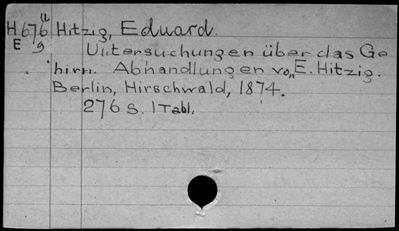 H676u Hitzig, Eduard.
E9 Untersuchungen über das Ge
hirn. Abhandlungen von E. Hitzig.
Berlin, Hirschwald, 1874.
276 S. 1 Tabl.